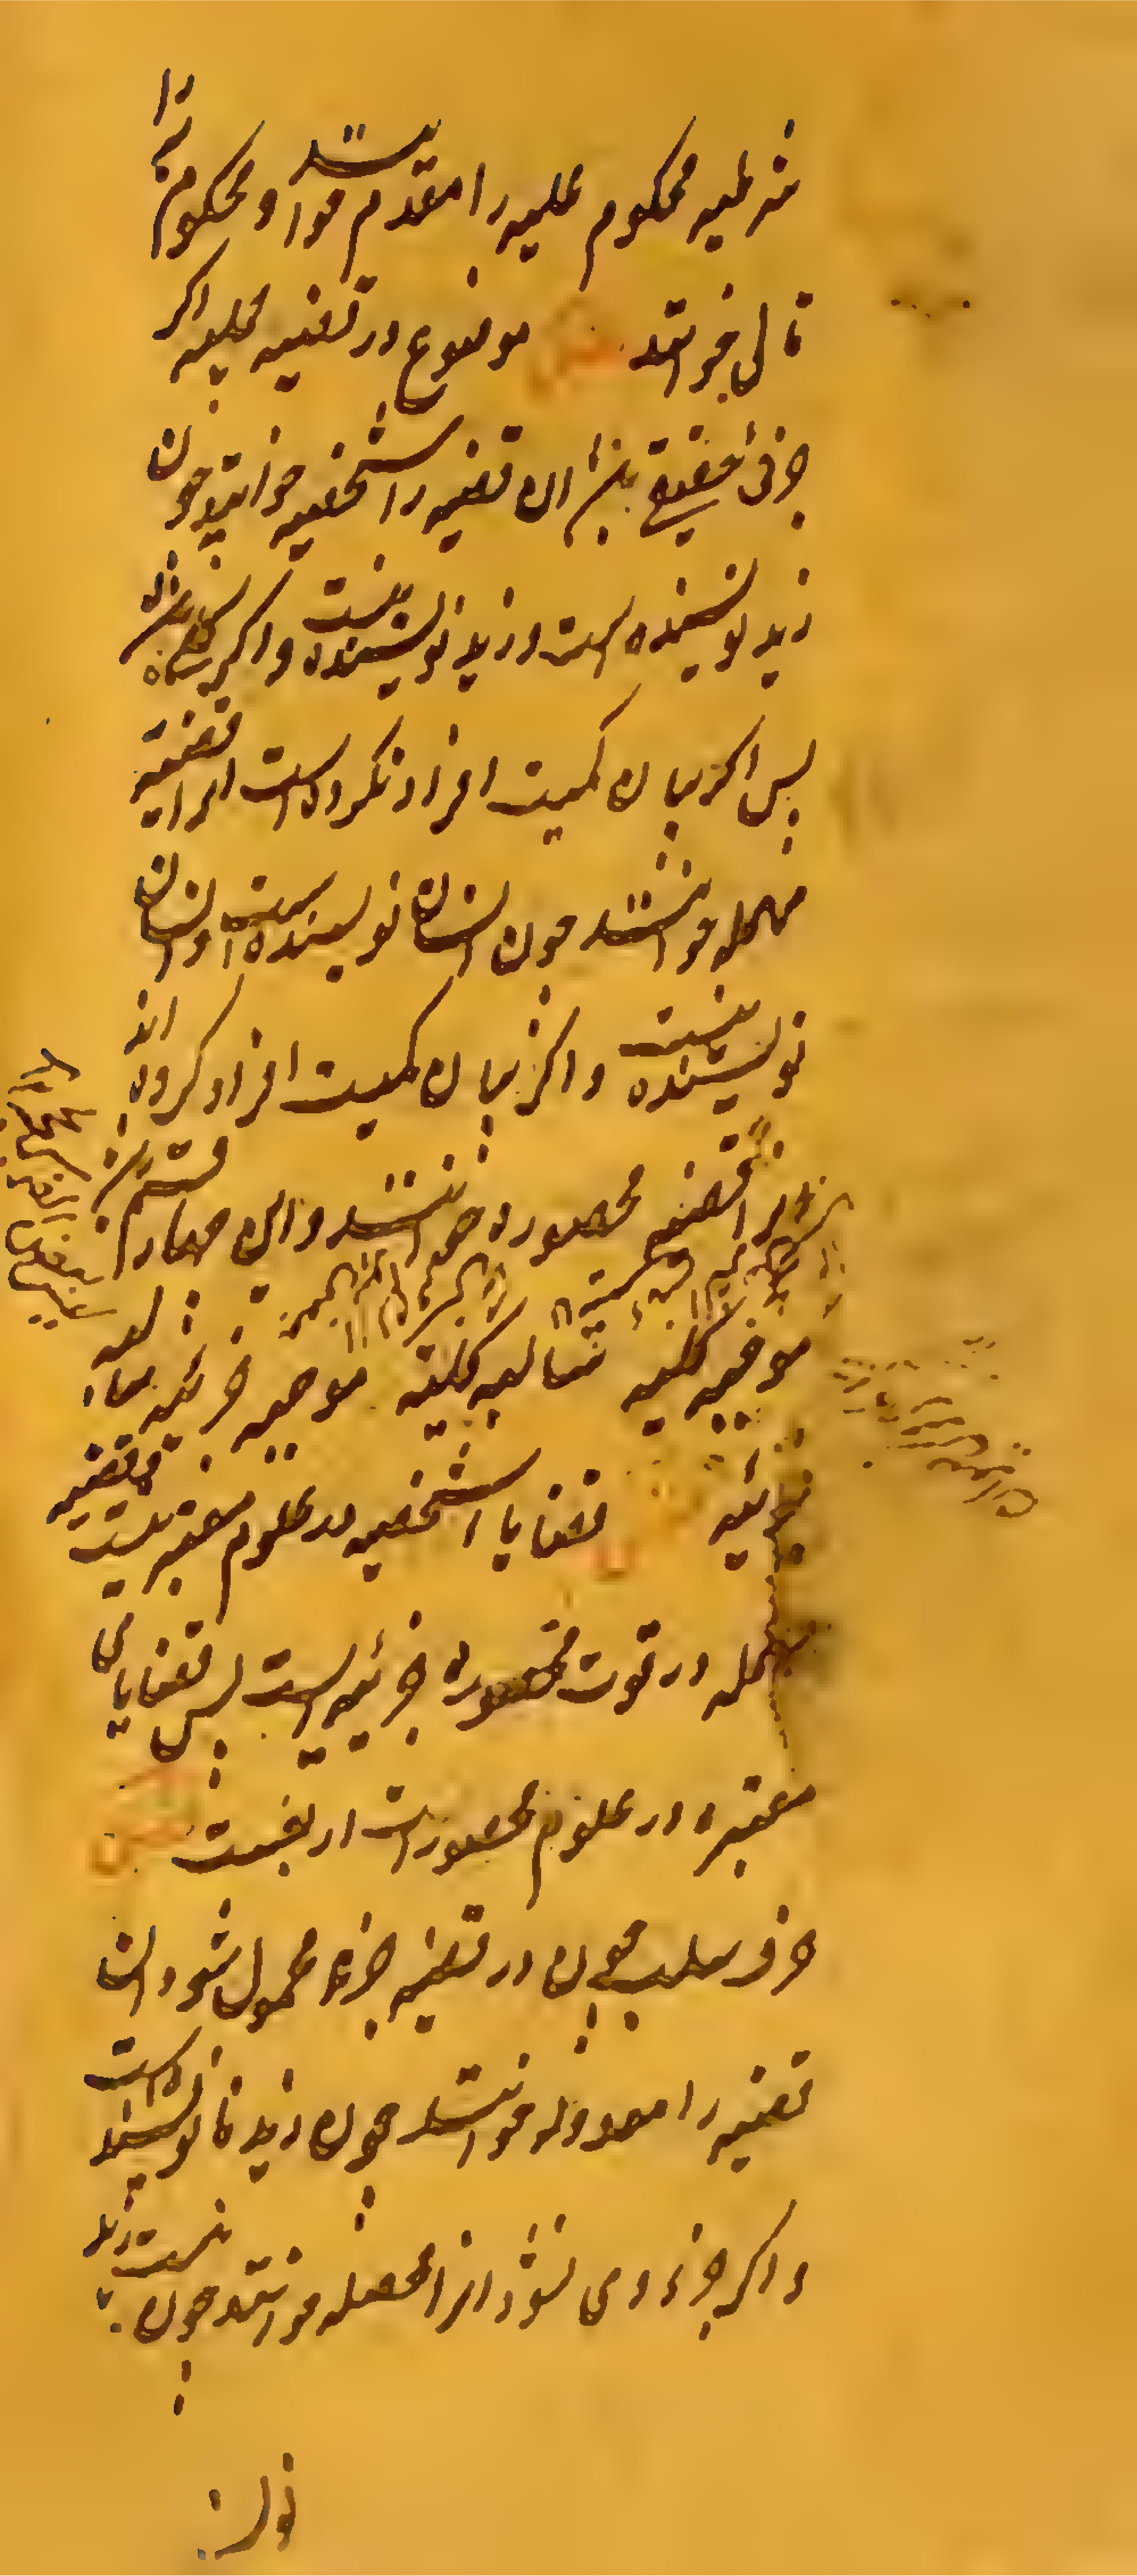 شرطیه محکوم علیه را مقدم خوانند و محکوم به را
تالی خوانند فصل موضوع در قضیه حملیه اگر
جزئی حقیقی باشد ان قضیه را شخصیه خوانند چون
زید نویسنده است و زید نویسنده نیست و اگر کلی باشد
پس اگر بیان کمیت افراد نکرده است انرا قضیه
مهمله خوانند چون انسان نویسنده است و انسان
نویسنده نیست و اگر بیان کمیت افراد کرده اند
انرا قضیه محصوره خوانند و این چهار قسم است
موجبه کلیه سالبه کلیه موجبه جزئیه سالبه
جزئیه قضایا شخصیه در علوم معتبر نیست و قضیه
مهمله در قوت محصوره جزئیه است پس قضایای
معتبره در علوم محصورات اربعست فصل
حرف سلب چون در قضیه جزء محمول شود ان
قضیه را معدوله خوانند چون زید نانویسنده است
و اگر جزء وی نشود انرا محصله خوانند چون زید نیست
نویسنده